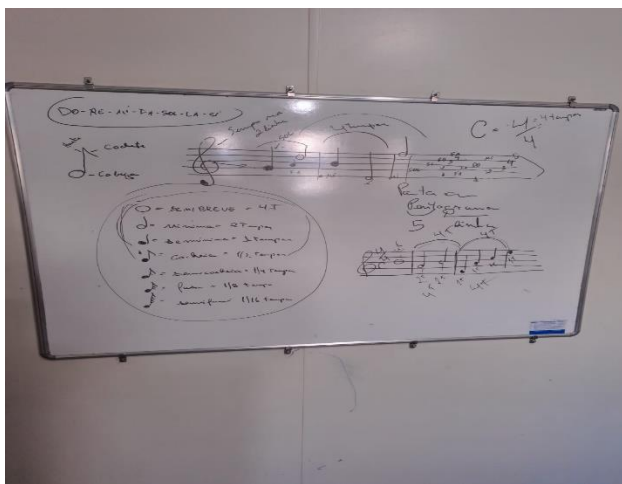 DO-RE-MI-FA-SOL-LA-SI
Sempre na
2 linha
4 tempos
C = 4/4 = 4 tempos
Cabeça
Pauta ou
Pentagrama
5 linhas
SEMIBREVE = 4T
minima = 2 tempos
seminima = 1 tempo
colcheia = 1/2 tempo
semicolcheia = 1/4 tempo
fusa = 1/8 tempo
semifusa 1/16 tempo
4T 4T
4T 4T